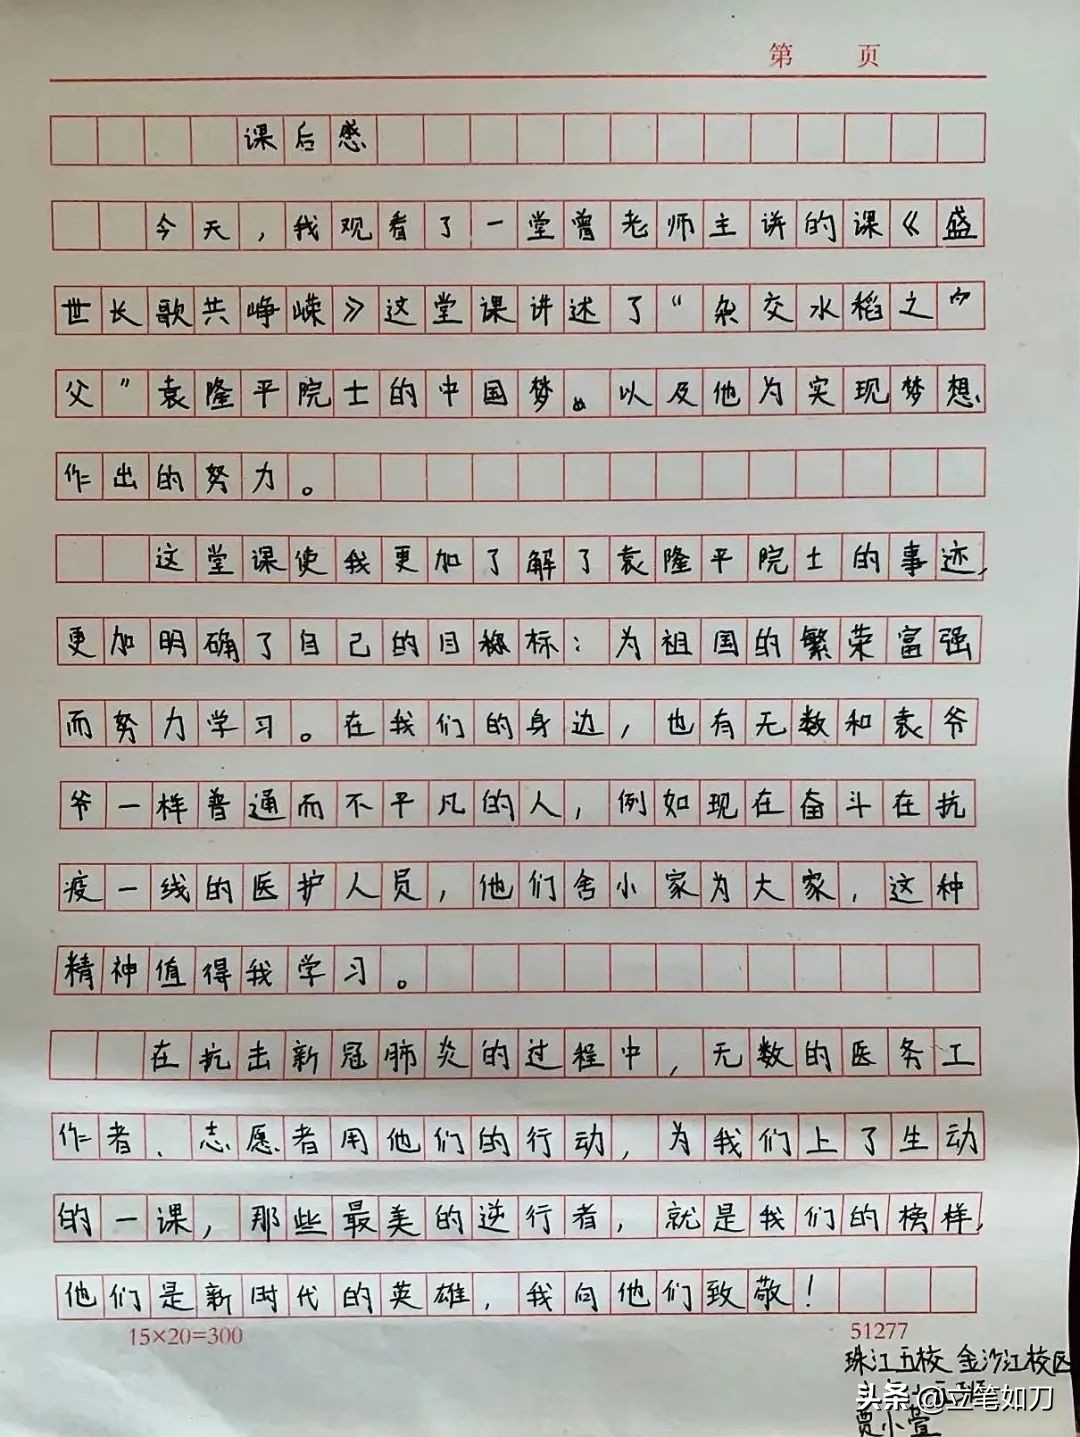 第 页
课后感
今天，我观看了一堂曾老师主讲的课《盛
世长歌共峥嵘》这堂课讲述了“杂交水稻之
父”袁隆平院士的中国梦。以及他为实现梦想
作出的努力。
这堂课使我更加了解了袁隆平院士的事迹，
更加明确了自己的目标：为祖国的繁荣富强
而努力学习。在我们的身边，也有无数和袁爷
爷一样普通而不平凡的人，例如现在奋斗在抗
疫一线的医护人员，他们舍小家为大家，这种
精神值得我学习。
在抗击新冠肺炎的过程中，无数的医务工
作者、志愿者用他们的行动，为我们上了生动
的一课，那些最美的逆行者，就是我们的榜样，
他们是新时代的英雄，我向他们致敬！
15×20=300
51277
珠江五校 金沙江校区
班
头条@立笔如刀
贾小萱